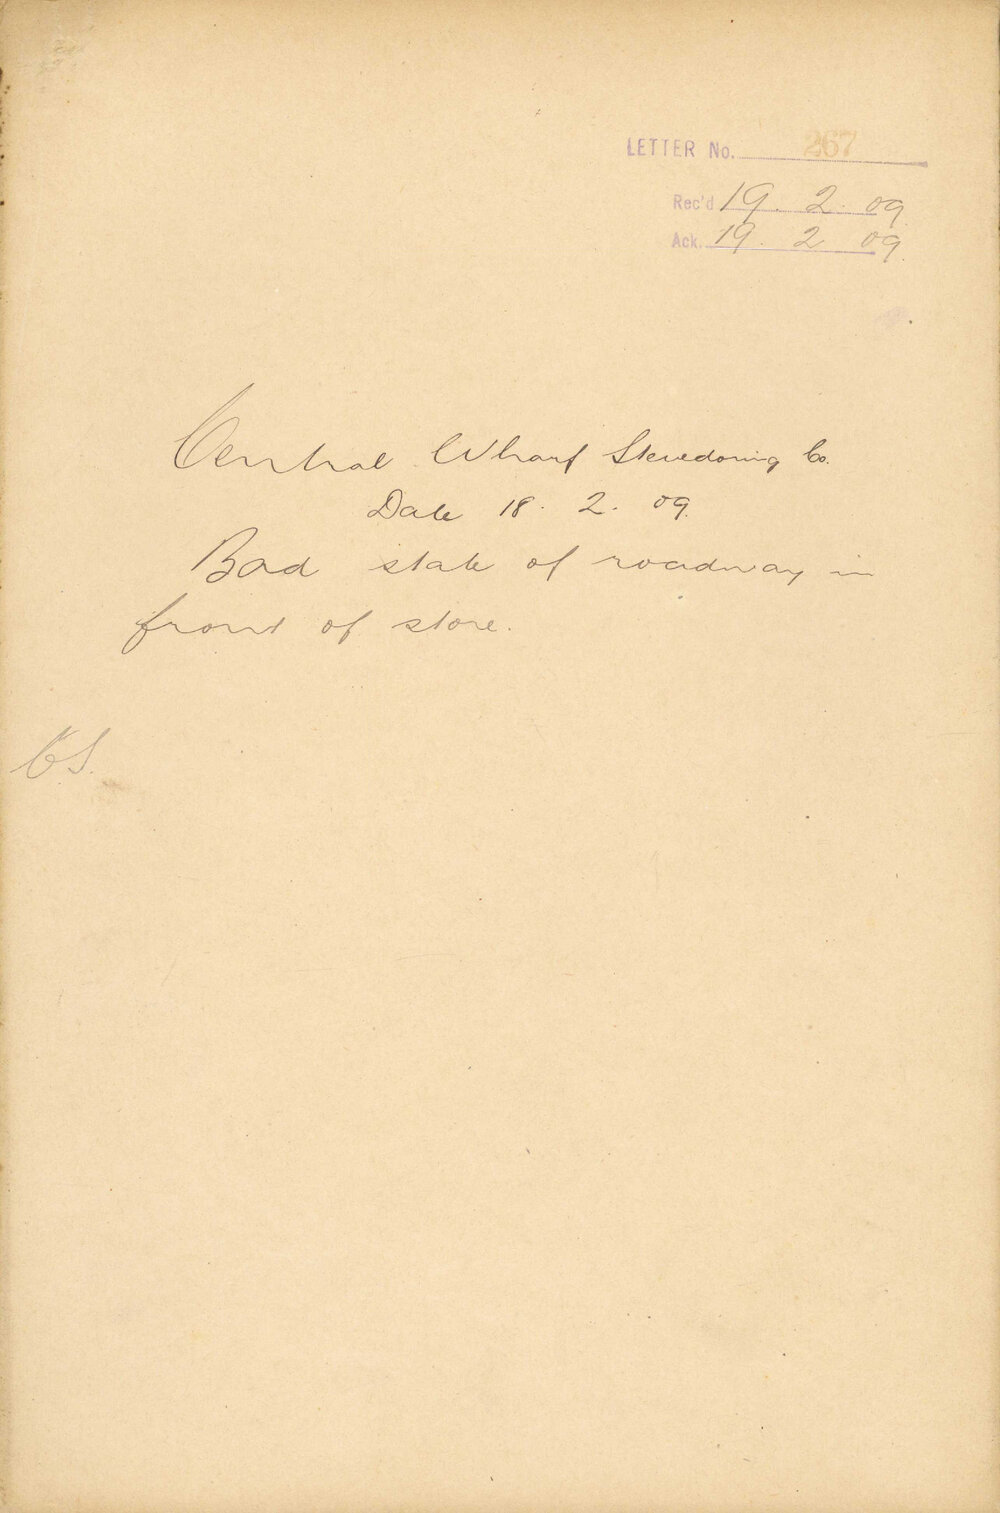 LETTER No. 267
Rec'd 19. 2. 09.
Ack. 19. 2 09.
Central Wharf Stevedoring Co.
Date 18. 2. 09.
Bad state of roadway in
front of store.